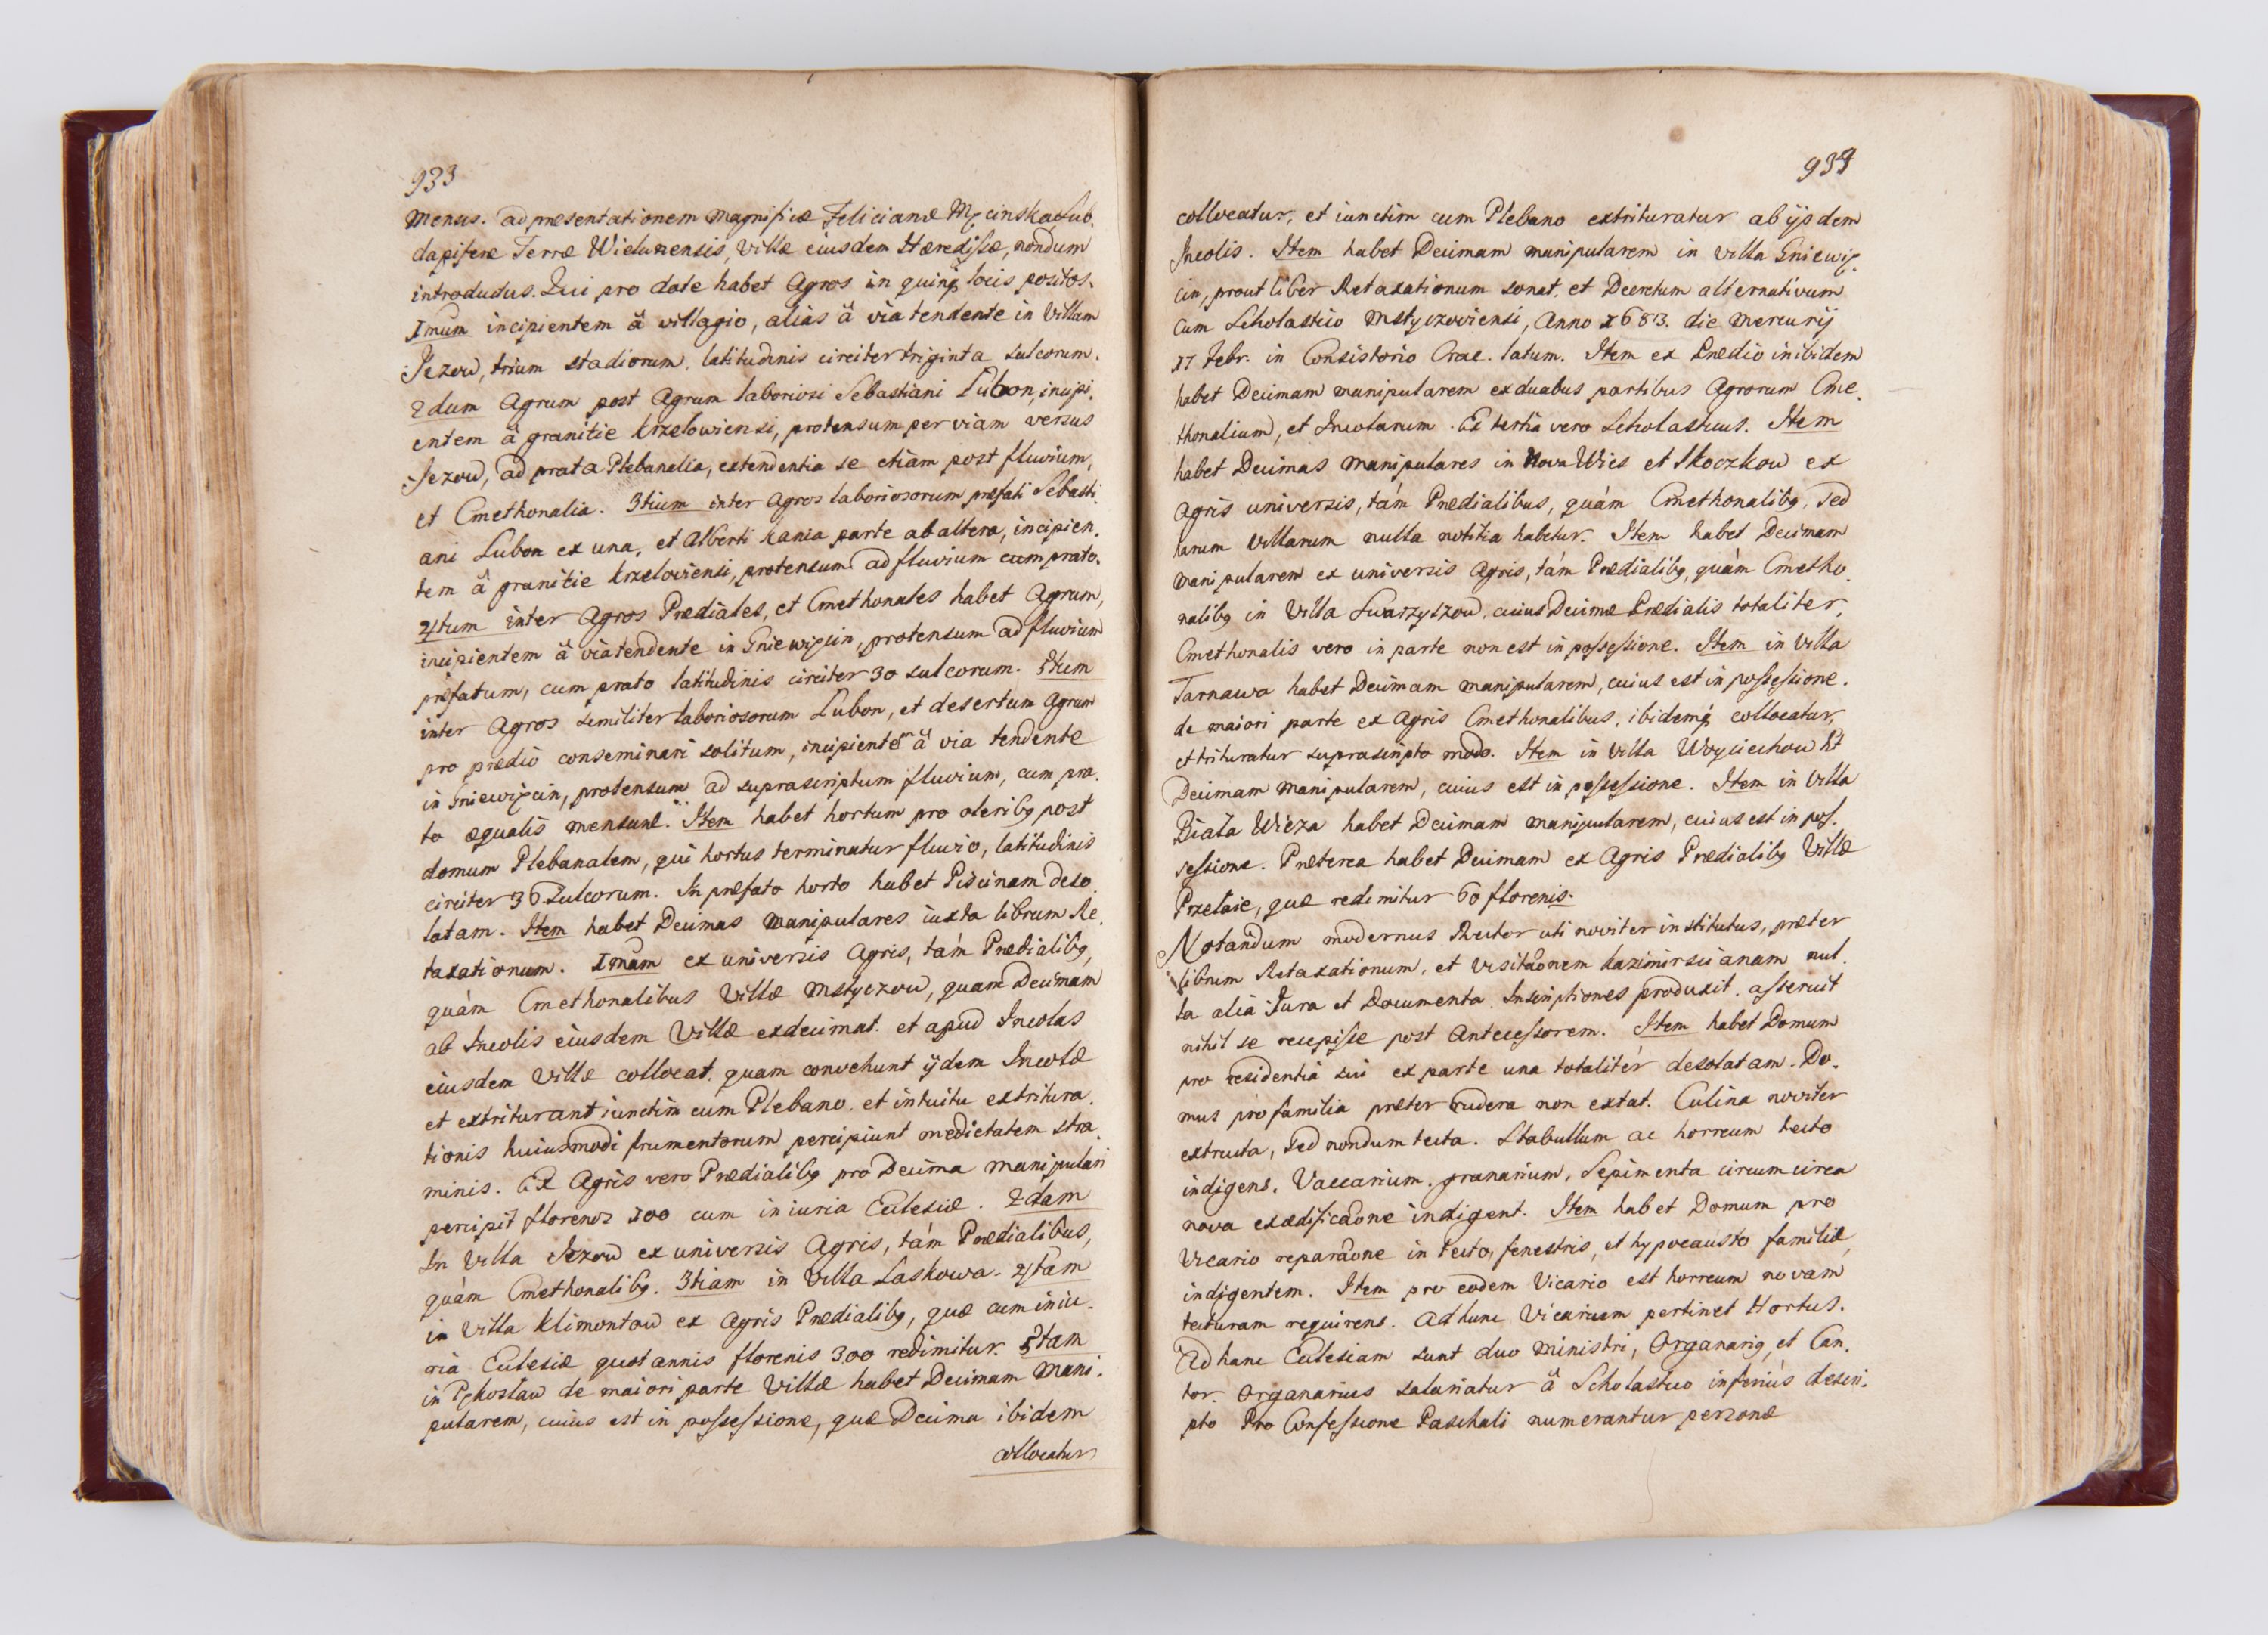 933
mensis. ad præsentationem Magnificæ Felicianæ Męcinska Sub.
dapiferæ Terræ Wielunensis, Villæ eiusdem Hæredissæ, nondum
introductus. Qui pro dote habet Agros in quinq locis positos.
Imum incipientem â villagio, alias â via tendente in Villam
Jezow, trium stadiorum, latitudinis circiter triginta sulcorum.
2dum Agrum post Agrum laboriosi Sebastiani Lubon, incipi.
entem â granitie Krzelowiensi, protensum per viam versus
Jezow, ad prata Plebanalia, extendentia se etiam post fluvium,
et Cmethonalia. 3tium inter Agros laboriosorum præfati Sebasti.
ani Lubon ex una, et Alberti Kania parte ab altera, incipien.
tem â granitie Krzelowiensi, protensum ad fluvium cum prato.
4tum inter Agros Prædiales, et Cmethonales habet Agrum,
incipientem â via tendente in Gniewięcin, protensum ad fluvium
præfatum, cum prato latitudinis circiter 30 sulcorum. 5tum
inter Agros similiter laboriosorum Lubon, et desertum Agrum
pro prædio conseminari solitum, incipientem â via tendente
in Gniewięcin, protensum ad suprascriptum fluvium, cum pra.
to æqualis mensuræ. Item habet hortum pro oleribq post
domum Plebanalem, qui hortus terminatur fluvio, latitudinis
circiter 36 sulcorum. In præfato horto habet Piscinam deso.
latam. Item habet Decimas manipulares iuxta librum Re.
taxationum. Imam ex universis Agris, tám Prædialibq,
quám Cmethonalibus Villæ Mstyczow, quam Decimam
ab Incolis eiusdem Villæ exdecimat. et apud Incolas
eiusdem Villæ collocat. quam convehunt ijdem Incolæ
et extriturant iunctim cum Plebano. et intuitu extritura.
tionis huiusmodi frumentorum percipiunt medietatem stra.
minis. Ex Agris vero Prædialibq pro Decima manipulari
percipit florenos 100 cum iniuria Eclesiæ. 2dam
In Villa Jezow ex universis Agris, tám Prædialibus,
quám Cmethonalibq. 3tiam in Villa Laskowa. 4tam
in Villa Klimontow ex Agris Prædialibq, quæ cum iniu.
ria Eclesiæ quotannis florenis 300 redimitur. 5tam
in Pękoslaw de maiori parte Villæ habet Decimam Mani.
pularem, cuius est in possessione, quæ Decima ibidem
collocatur
939
collocatur, et iunctim cum Plebano extrituratur ab ijsdem
Incolis. Item habet Decimam manipularem in Villa Gniewię.
cin, prout liber Retaxationum sonat. et Decretum alternativum
Cum Scholastico Mstyczoviensi, Anno 1683. die Mercurij
17 Febr. in Consistorio Crac. latum. Item ex Prædio inibidem
habet Decimam manipularem ex duabus partibus Agrorum Cme.
thonalium, et Incolarum. Ex tertia vero Scholasticus. Item
habet Decimas Manipulares in Nova Wies et Skoczkow ex
Agris universis, tám Prædialibus, quám Cmethonalibq, sed
harum Villarum nulla notitia habetur. Item habet Decimam
manipularem ex universis Agris, tám Prædialibq, quám Cmetho.
nalibq in Villa Swarzyszow, cuius Decimæ Prædialis totaliter,
Cmethonalis vero in parte non est in possessione. Item in Villa
Tarnawa habet Decimam manipularem, cuius est in possessione.
de maiori parte ex Agris Cmethonalibus, ibidemq collocatur,
et trituratur suprascripto modo. Item in Villa Woyciechow ht
Decimam manipularem, cuius est in possessione. Item in Villa
Biała Wieza habet Decimam manipularem, cuius est in pos.
sessione. Præterea habet Decimam ex Agris Prædialibq Villæ
Przełaie, quæ redimitur 60 florenis.
Notandum modernus Rector uti noviter institutus, præter
librum Retaxationum, et Visitaonem Kazimirscianam nul.
la alia Jura et Documenta Inscriptiones produxit. asseruit
nihil se recepisse post Antecessorem. Item habet Domum
pro residentia sui ex parte una totalitér desolatam. Do.
mus pro familia præter rudera non extat. Culina noviter
extructa, sed nondum tecta. Stabullum ac horreum tecto
indigens. Vaccarium, granarium, Sepimenta circum circa
nova exædificaone indigent. Item habet Domum pro
Vicario reparaone in tecto, fenestris, et hypocausto familiæ,
indigentem. Item pro eodem Vicario est horreum novam
tecturam requirens. Ad hunc Vicarium pertinet Hortus.
Ad hanc Eclesiam sunt duo ministri, Organariq, et Can.
tor. Organarius salariatur â Scholastico inferiús descri.
pto Pro Confessione Paschali numerantur personæ